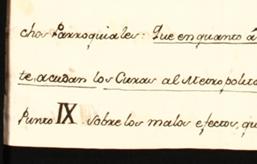 chos Parroquiales: Que en quanto á
te, acudan los Curas al Metropolit
Punto IX sobre los malos efectos, qu